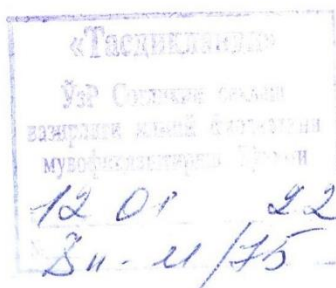 «Тасдиқланди»
ЎзР Соғлиқни сақлаш
вазирлиги илмий фаолиятни
мувофиқлаштириш бўлими
12 01 22
8н-
/75